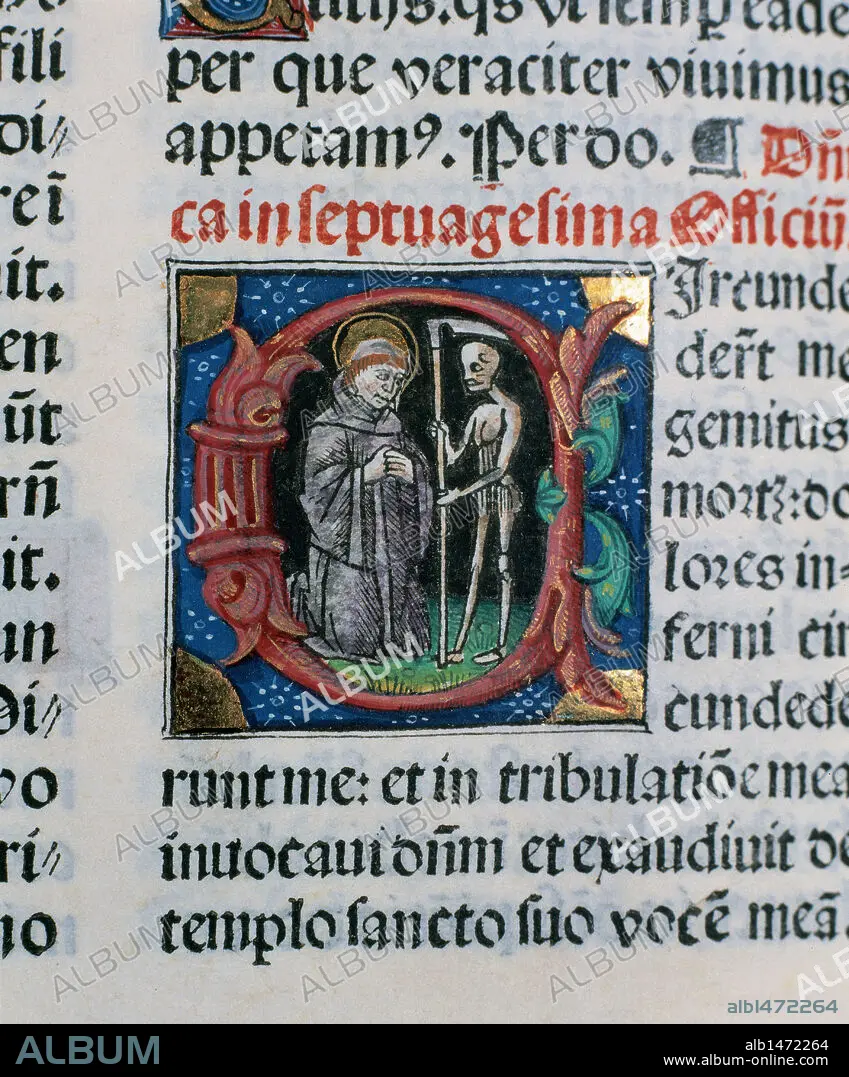 fili
di⸗
reī
it.
en
ūt
rn̄
it.
un
Di⸗
vo
ri⸗
no
per que veraciter viuimus
appetamꝰ. Per do. ¶ Dn̄i
ca in septuagesima Officiū.
Circunde
der̄t me
gemitus
mortꝫ: do
lores in⸗
ferni cir
cundede
runt me: et in tribulatiōe mea
inuocaui dūm et exaudiuit de
templo sancto suo vocē meā.
ALBUM
alb1472264
ALBUM
alb1472264
www.album-online.com